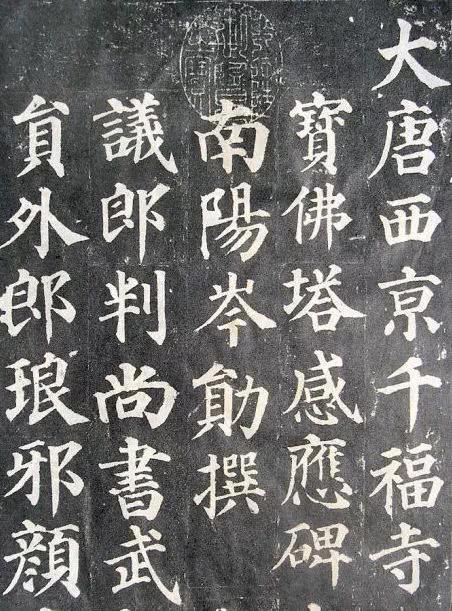 大唐西亰千福寺
寶佛塔感應碑
南陽岑勛撰
議郎判尚書武
貟外郎琅邪顔